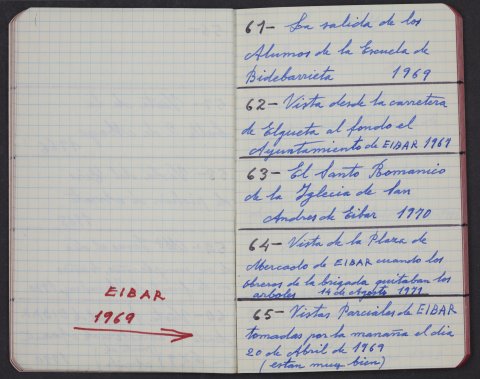 EIBAR
1969
61- La salida de los
Alumos de la Escuela de
Bidebarrieta 1969
62- Vista desde la carretera
de Elgueta al fondo el
Ayuntamiento de EIBAR 1969
63- El Santo Romanico
de la Iglecia de San
Andres de Eibar 1970
64- Vista de la Plaza de
Mercado de EIBAR cuando los
obreros de la brigada quitaban los
arboles 14 de Agosto 1971
65- Vistas Parciales de EIBAR
tomadas por la maraña el dia
20 de Abril de 1969
(estan muy bien)